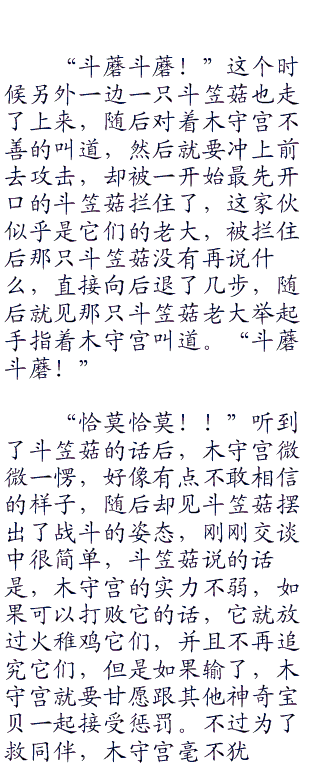 “斗蘑斗蘑！”这个时
候另外一边一只斗笠菇也走
了上来，随后对着木守宫不
善的叫道，然后就要冲上前
去攻击，却被一开始最先开
口的斗笠菇拦住了，这家伙
似乎是它们的老大，被拦住
后那只斗笠菇没有再说什
么，直接向后退了几步，随
后就见那只斗笠菇老大举起
手指着木守宫叫道。“斗蘑
斗蘑！”
“恰莫恰莫！！”听到
了斗笠菇的话后，木守宫微
微一愣，好像有点不敢相信
的样子，随后却见斗笠菇摆
出了战斗的姿态，刚刚交谈
中很简单，斗笠菇说的话
是，木守宫的实力不弱，如
果可以打败它的话，它就放
过火稚鸡它们，并且不再追
究它们，但是如果输了，木
守宫就要甘愿跟其他神奇宝
贝一起接受惩罚。不过为了
救同伴，木守宫毫不犹